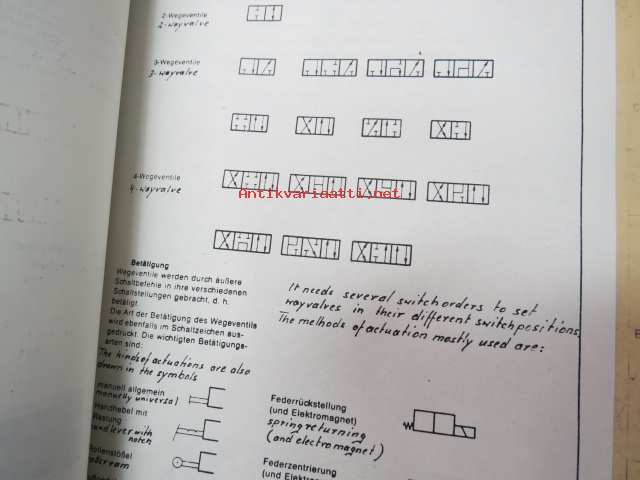 2-Wegeventile
2-wayvalve
3-Wegeventile
3-wayvalve
4-Wegeventile
4-wayvalve
Antikvariaatti.net
Betätigung
Wegeventile werden durch äußere
Schaltbefehle in ihre verschiedenen
Schaltstellungen gebracht, d. h.
betätigt.
Die Art der Betätigung des Wegeventile
wird ebenfalls im Schaltzeichen aus-
gedrückt. Die wichtigten Betätigungs-
arten sind:
The kinds of actuations are also
drawn in the symbols
It needs several switch orders to set
wayvalves in their different switchpositions.
The methods of actuation mostly used are:
manuell allgemein
manuelly universal
Handhebel mit
Rastung
handlever with
notch
Rollenstößel
Federrückstellung
(und Elektromagnet)
spring returning
(and electromagnet)
Federzentrierung
(und Elektromagnet)